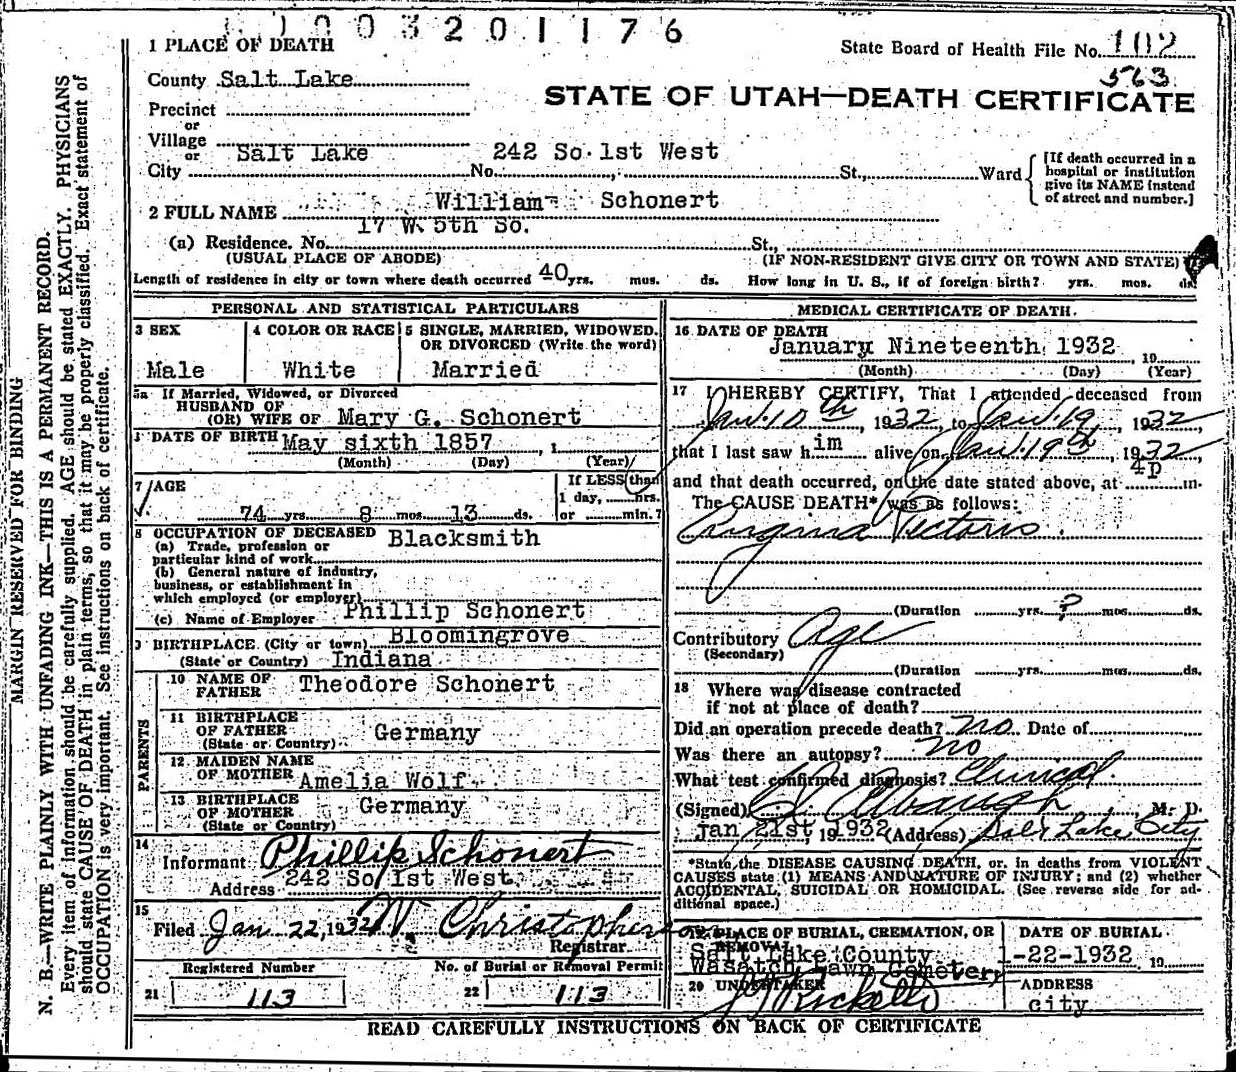 003201176
1 PLACE OF DEATH
State Board of Health File No. 102
563
County Salt Lake
STATE OF UTAH—DEATH CERTIFICATE
Precinct
or
Village
or
City Salt Lake No. 242 So. 1st West St., Ward
[If death occurred in a
hospital or institution
give its NAME instead
of street and number.]
2 FULL NAME William Schonert
(a) Residence. No. 17 W. 5th So. St.,
(USUAL PLACE OF ABODE) (IF NON-RESIDENT GIVE CITY OR TOWN AND STATE)
Length of residence in city or town where death occurred 40 yrs. mos. ds. How long in U. S., if of foreign birth? yrs. mos. ds.
PERSONAL AND STATISTICAL PARTICULARS
3 SEX
Male
4 COLOR OR RACE
White
5 SINGLE, MARRIED, WIDOWED,
OR DIVORCED (Write the word)
Married
5a If Married, Widowed, or Divorced
HUSBAND OF
(OR) WIFE OF Mary G. Schonert
DATE OF BIRTH May sixth 1857, 1
(Month) (Day) (Year)
7 AGE
74 yrs. 8 mos. 13 ds.
If LESS than
1 day, hrs.
or min.?
8 OCCUPATION OF DECEASED Blacksmith
(a) Trade, profession or
particular kind of work
(b) General nature of industry,
business, or establishment in
which employed (or employer)
(c) Name of Employer Phillip Schonert
9 BIRTHPLACE (City or town) Bloomingrove
(State or Country) Indiana
PARENTS
10 NAME OF
FATHER Theodore Schonert
11 BIRTHPLACE
OF FATHER Germany
(State or Country)
12 MAIDEN NAME
OF MOTHER Amelia Wolf
13 BIRTHPLACE
OF MOTHER Germany
(State or Country)
14
Informant Phillip Schonert
Address 242 So 1st West
15
Filed Jan 22, 1932 W. Christopherson
Registrar
Registered Number
21 113
No. of Burial or Removal Permit
22 113
MEDICAL CERTIFICATE OF DEATH.
16 DATE OF DEATH
January Nineteenth 1932, 19
(Month) (Day) (Year)
17 I HEREBY CERTIFY, That I attended deceased from
Jan. 10th, 1932, to Jan. 19, 1932
that I last saw him alive on Jan. 19th, 1932,
and that death occurred, on the date stated above, at 4p m.
The CAUSE DEATH* was as follows:
Angina Pectoris
(Duration yrs. ? mos. ds.
Contributory Age
(Secondary)
(Duration yrs. mos. ds.
18 Where was disease contracted
if not at place of death?
Did an operation precede death? no Date of
Was there an autopsy? no
What test confirmed diagnosis? Clinical
(Signed) M. D.
Jan 21st, 19 1932 (Address) Salt Lake City
*State the DISEASE CAUSING DEATH, or. in deaths from VIOLENT
CAUSES state (1) MEANS AND NATURE OF INJURY; and (2) whether
ACCIDENTAL, SUICIDAL OR HOMICIDAL. (See reverse side for ad-
ditional space.)
19 PLACE OF BURIAL, CREMATION, OR
REMOVAL
Salt Lake County
Wasatch Lawn Cemetery
DATE OF BURIAL
1-22-1932 19
20 UNDERTAKER
ADDRESS
city
READ CAREFULLY INSTRUCTIONS ON BACK OF CERTIFICATE
MARGIN RESERVED FOR BINDING
N. B.—WRITE PLAINLY WITH UNFADING INK—THIS IS A PERMANENT RECORD.
Every item of information should be carefully supplied. AGE should be stated EXACTLY. PHYSICIANS
should state CAUSE OF DEATH in plain terms, so that it may be properly classified. Exact statement of
OCCUPATION is very important. See instructions on back of certificate.